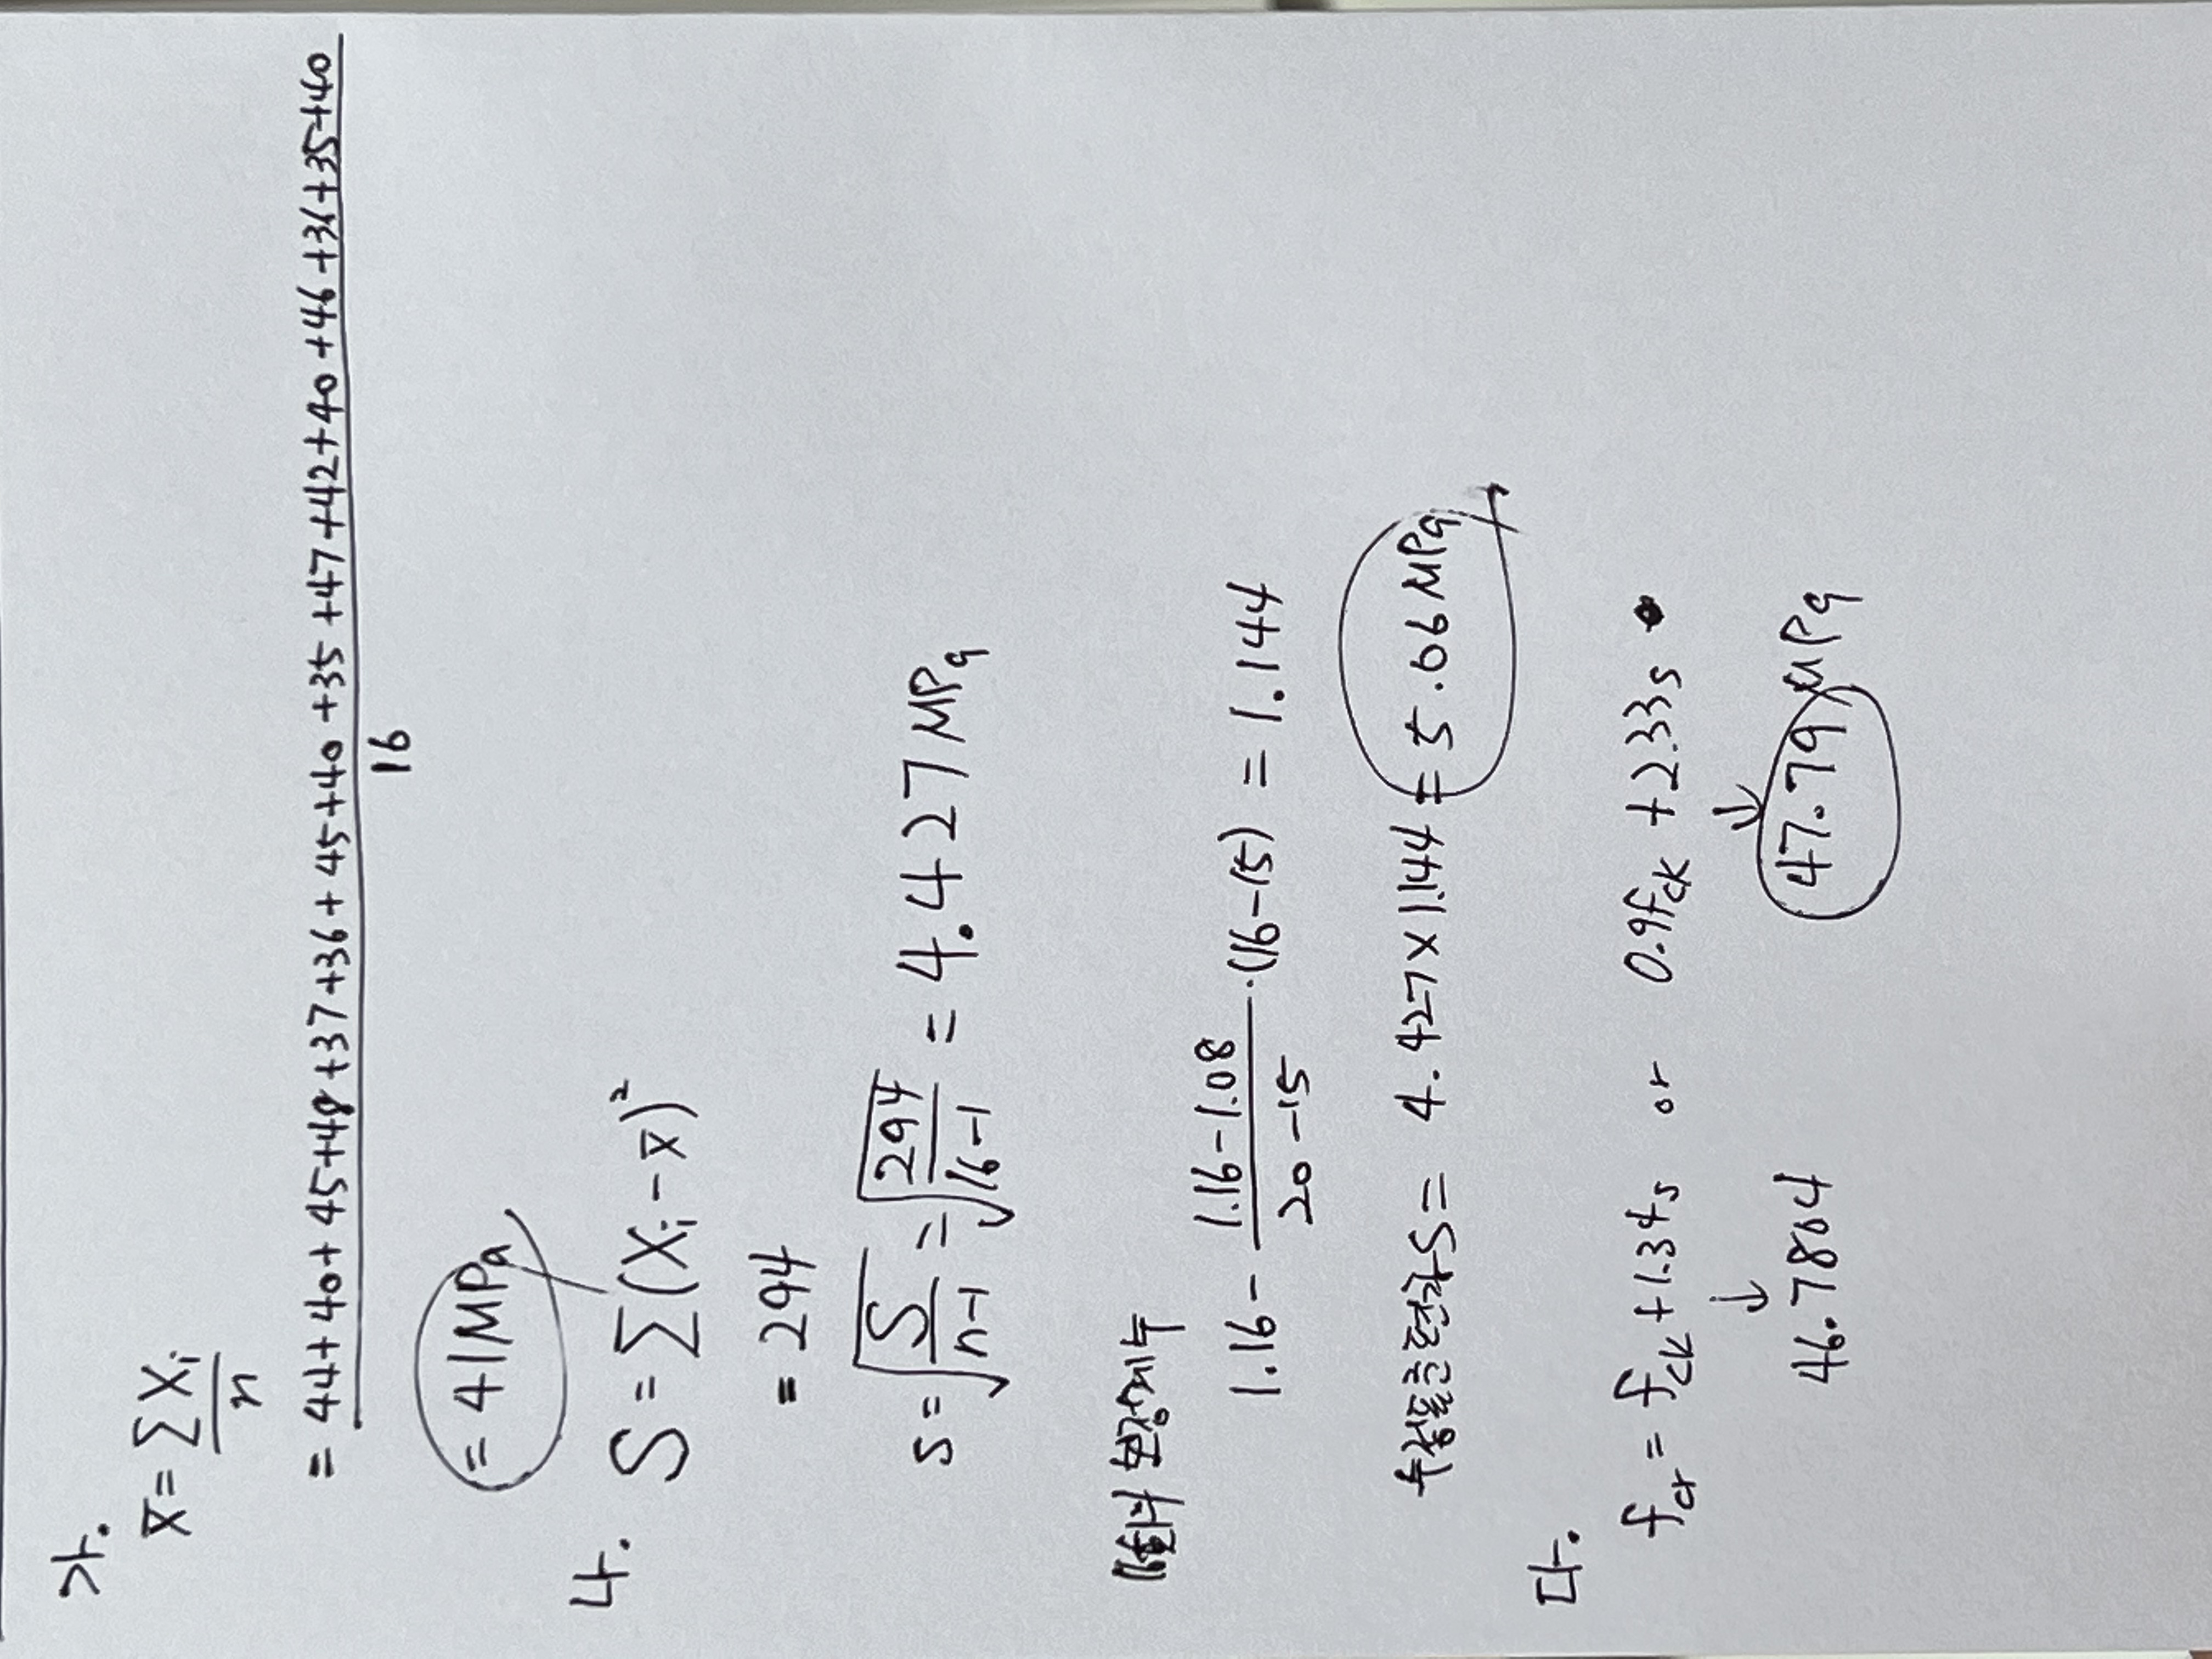 가.
x̄ = ΣXᵢ / n
= 44+40+45+48+37+36+45+40+35+47+42+40+46+36+35+40 / 16
= 41MPa
나. S = Σ(Xᵢ - x̄)²
= 294
s = √(S / n-1) = √(294 / 16-1) = 4.427MPa
16회의 보정계수
1.16 - (1.16-1.08 / 20-15)·(16-15) = 1.144
수정표준편차S = 4.427×1.144 = 5.06MPa
다.
fcr = fck+1.34s or 0.9fck+2.33s
↓ ⇓
46.7804 47.79MPa